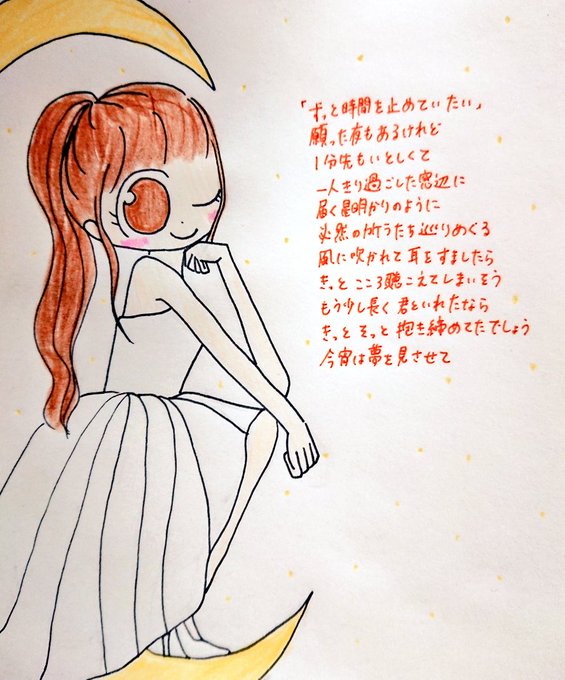 「ずっと時間を止めていたい」
願った夜もあるけれど
1分先もいとしくて
一人きり過ごした窓辺に
届く星明かりのように
必然の うたち巡りめぐる
風に吹かれて 耳をすましたら
きっと こころ聴こえてしまいそう
もう少し長く 君といれたなら
きっと そっと 抱き締めてたでしょう
今宵は夢を見させて